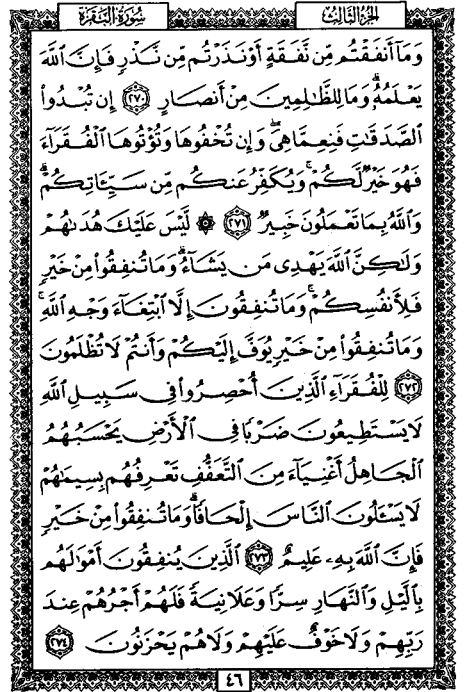 الجزء الثالث
سورة البقرة
وَمَآ أَنفَقْتُم مِّن نَّفَقَةٍ أَوْ نَذَرْتُم مِّن نَّذْرٍ فَإِنَّ ٱللَّهَ
يَعْلَمُهُۥ ۗ وَمَا لِلظَّٰلِمِينَ مِنْ أَنصَارٍ ٢٧٠ إِن تُبْدُوا۟
ٱلصَّدَقَٰتِ فَنِعِمَّا هِىَ ۖ وَإِن تُخْفُوهَا وَتُؤْتُوهَا ٱلْفُقَرَآءَ
فَهُوَ خَيْرٌ لَّكُمْ ۚ وَيُكَفِّرُ عَنكُم مِّن سَيِّـَٔاتِكُمْ ۗ
وَٱللَّهُ بِمَا تَعْمَلُونَ خَبِيرٌ ٢٧١ ۞ لَّيْسَ عَلَيْكَ هُدَىٰهُمْ
وَلَٰكِنَّ ٱللَّهَ يَهْدِى مَن يَشَآءُ ۗ وَمَا تُنفِقُوا۟ مِنْ خَيْرٍ
فَلِأَنفُسِكُمْ ۚ وَمَا تُنفِقُونَ إِلَّا ٱبْتِغَآءَ وَجْهِ ٱللَّهِ ۚ
وَمَا تُنفِقُوا۟ مِنْ خَيْرٍ يُوَفَّ إِلَيْكُمْ وَأَنتُمْ لَا تُظْلَمُونَ
٢٧٢ لِلْفُقَرَآءِ ٱلَّذِينَ أُحْصِرُوا۟ فِى سَبِيلِ ٱللَّهِ
لَا يَسْتَطِيعُونَ ضَرْبًا فِى ٱلْأَرْضِ يَحْسَبُهُمُ
ٱلْجَاهِلُ أَغْنِيَآءَ مِنَ ٱلتَّعَفُّفِ تَعْرِفُهُم بِسِيمَٰهُمْ
لَا يَسْـَٔلُونَ ٱلنَّاسَ إِلْحَافًا ۗ وَمَا تُنفِقُوا۟ مِنْ خَيْرٍ
فَإِنَّ ٱللَّهَ بِهِۦ عَلِيمٌ ٢٧٣ ٱلَّذِينَ يُنفِقُونَ أَمْوَٰلَهُم
بِٱلَّيْلِ وَٱلنَّهَارِ سِرًّا وَعَلَانِيَةً فَلَهُمْ أَجْرُهُمْ عِندَ
رَبِّهِمْ وَلَا خَوْفٌ عَلَيْهِمْ وَلَا هُمْ يَحْزَنُونَ ٢٧٤
٤٦